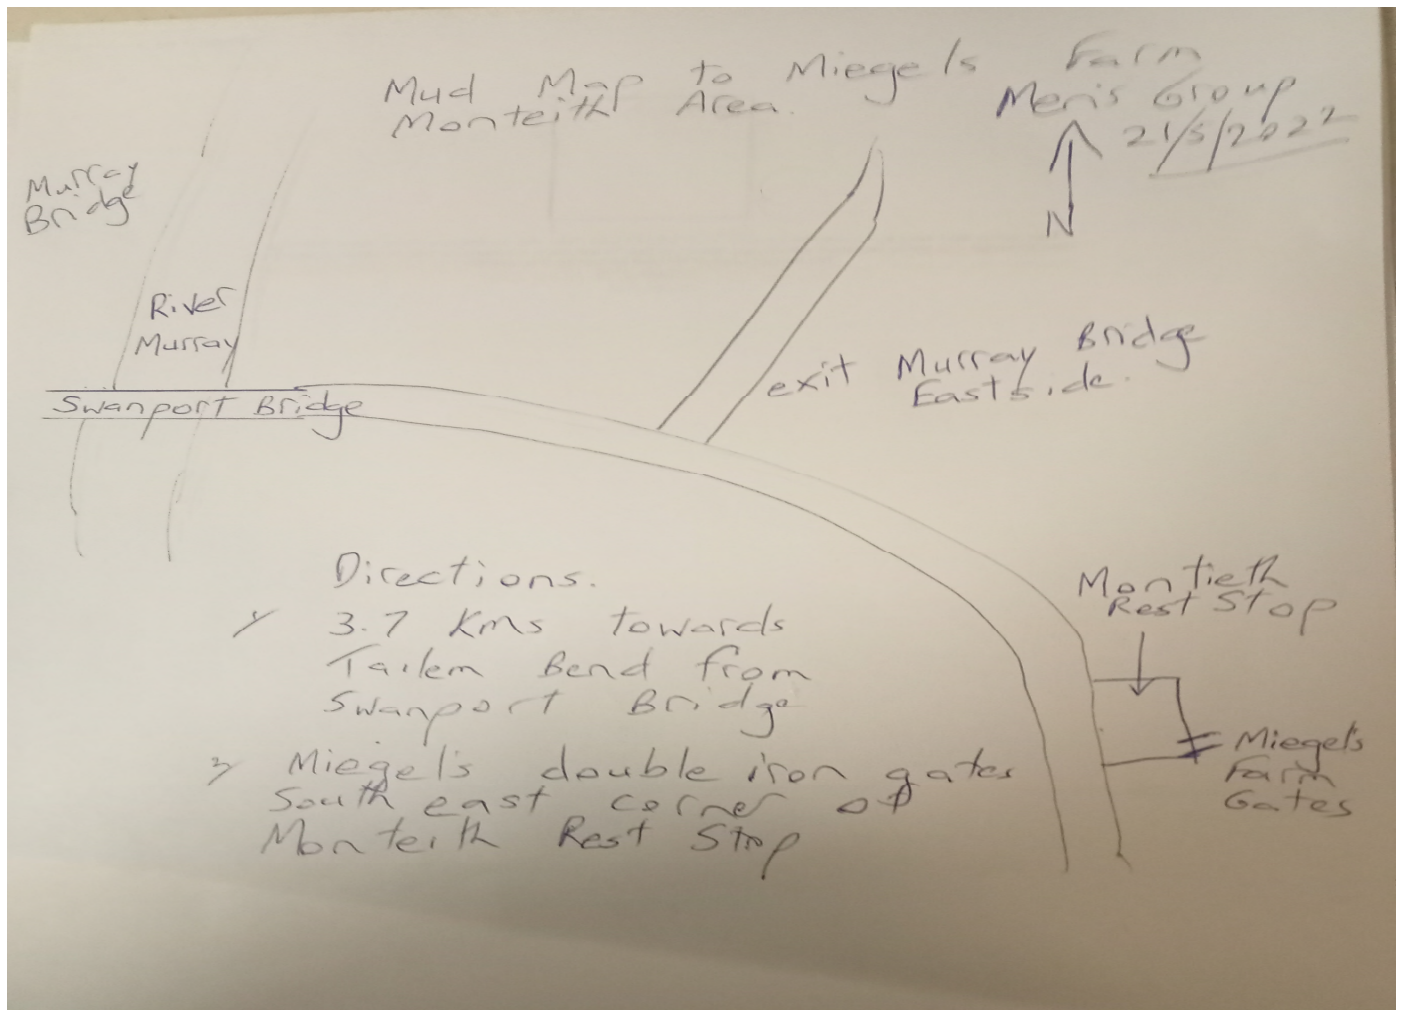 Mud Map to Miegels Farm
Monteith Area.
Men's Group
21/5/2022
N
Murray
Bridge
River
Murray
Swanport Bridge
exit Murray Bridge
Eastside.
Directions.
1/ 3.7 Kms towards
Tailem Bend from
Swanport Bridge
2/ Miegel's double iron gates
South east corner of
Monteith Rest Stop
Montieth
Rest Stop
Miegel's
Farm
Gates